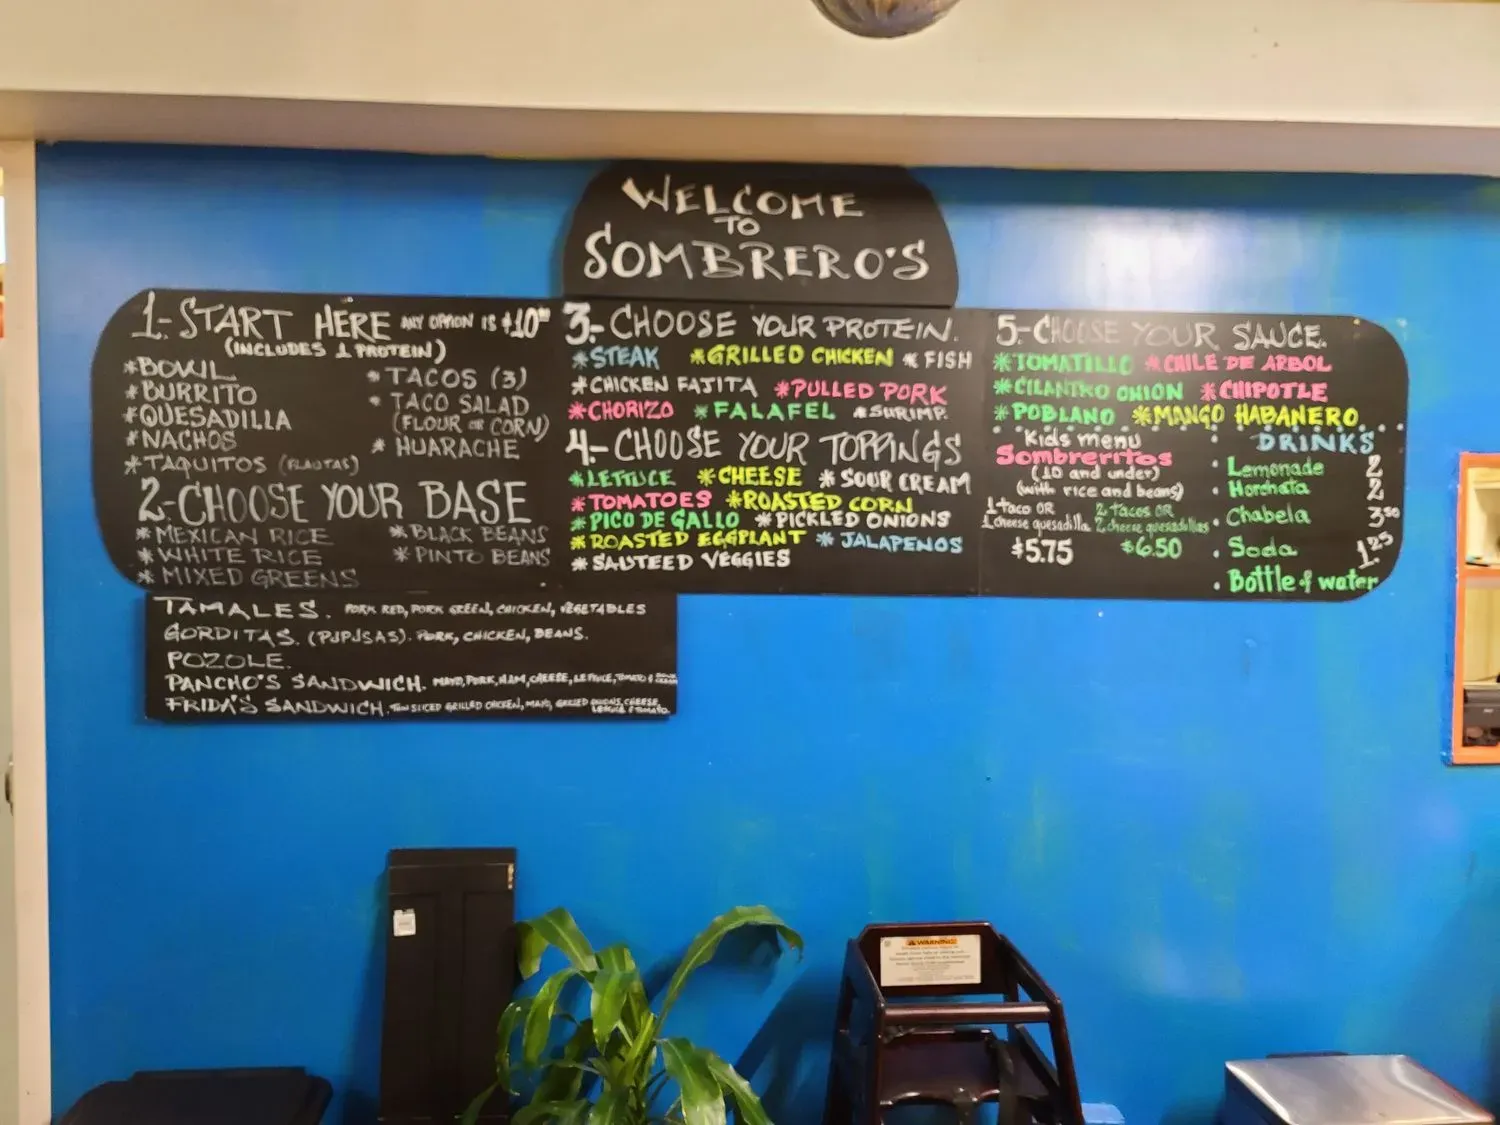 WELCOME
TO
SOMBRERO'S
1.-START HERE ANY OPTION IS $10
(INCLUDES 1 PROTEIN)
*BOWL
*BURRITO
*QUESADILLA
*NACHOS
*TAQUITOS (FLAUTAS)
*TACOS (3)
*TACO SALAD
(FLOUR OR CORN)
*HUARACHE
2-CHOOSE YOUR BASE
*MEXICAN RICE
*WHITE RICE
*MIXED GREENS
*BLACK BEANS
*PINTO BEANS
3.-CHOOSE YOUR PROTEIN.
*STEAK *GRILLED CHICKEN *FISH
*CHICKEN FAJITA *PULLED PORK
*CHORIZO *FALAFEL *SHRIMP.
4-CHOOSE YOUR TOPPINGS
*LETTUCE *CHEESE *SOUR CREAM
*TOMATOES *ROASTED CORN
*PICO DE GALLO *PICKLED ONIONS
*ROASTED EGGPLANT *JALAPENOS
*SAUTEED VEGGIES
5-CHOOSE YOUR SAUCE.
*TOMATILLO *CHILE DE ARBOL
*CILANTRO ONION *CHIPOTLE
*POBLANO *MANGO HABANERO
Kids menu
Sombreritos
(10 and under)
(with rice and beans)
1 taco OR
1 cheese quesadilla
$5.75
2 tacos OR
2 cheese quesadillas
$6.50
DRINKS
• Lemonade 2
• Horchata 2
• Chabela 3.50
• Soda 1.25
• Bottle of water
TAMALES. PORK RED, PORK GREEN, CHICKEN, VEGETABLES
GORDITAS. (PJPJSAS). PORK, CHICKEN, BEANS.
POZOLE.
PANCHO'S SANDWICH. MAYO, PORK, HAM, CHEESE, LETTUCE, TOMATO & SOUR CREAM
FRIDA'S SANDWICH. THIN SLICED GRILLED CHICKEN, MAYO, GRILLED ONIONS, CHEESE,
LETTUCE & TOMATO.
WARNING